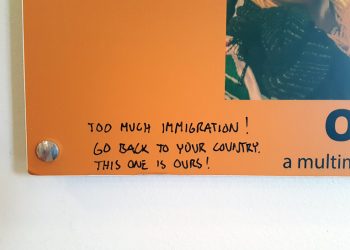 TOO MUCH IMMIGRATION!
GO BACK TO YOUR COUNTRY.
THIS ONE IS OURS!
a multim